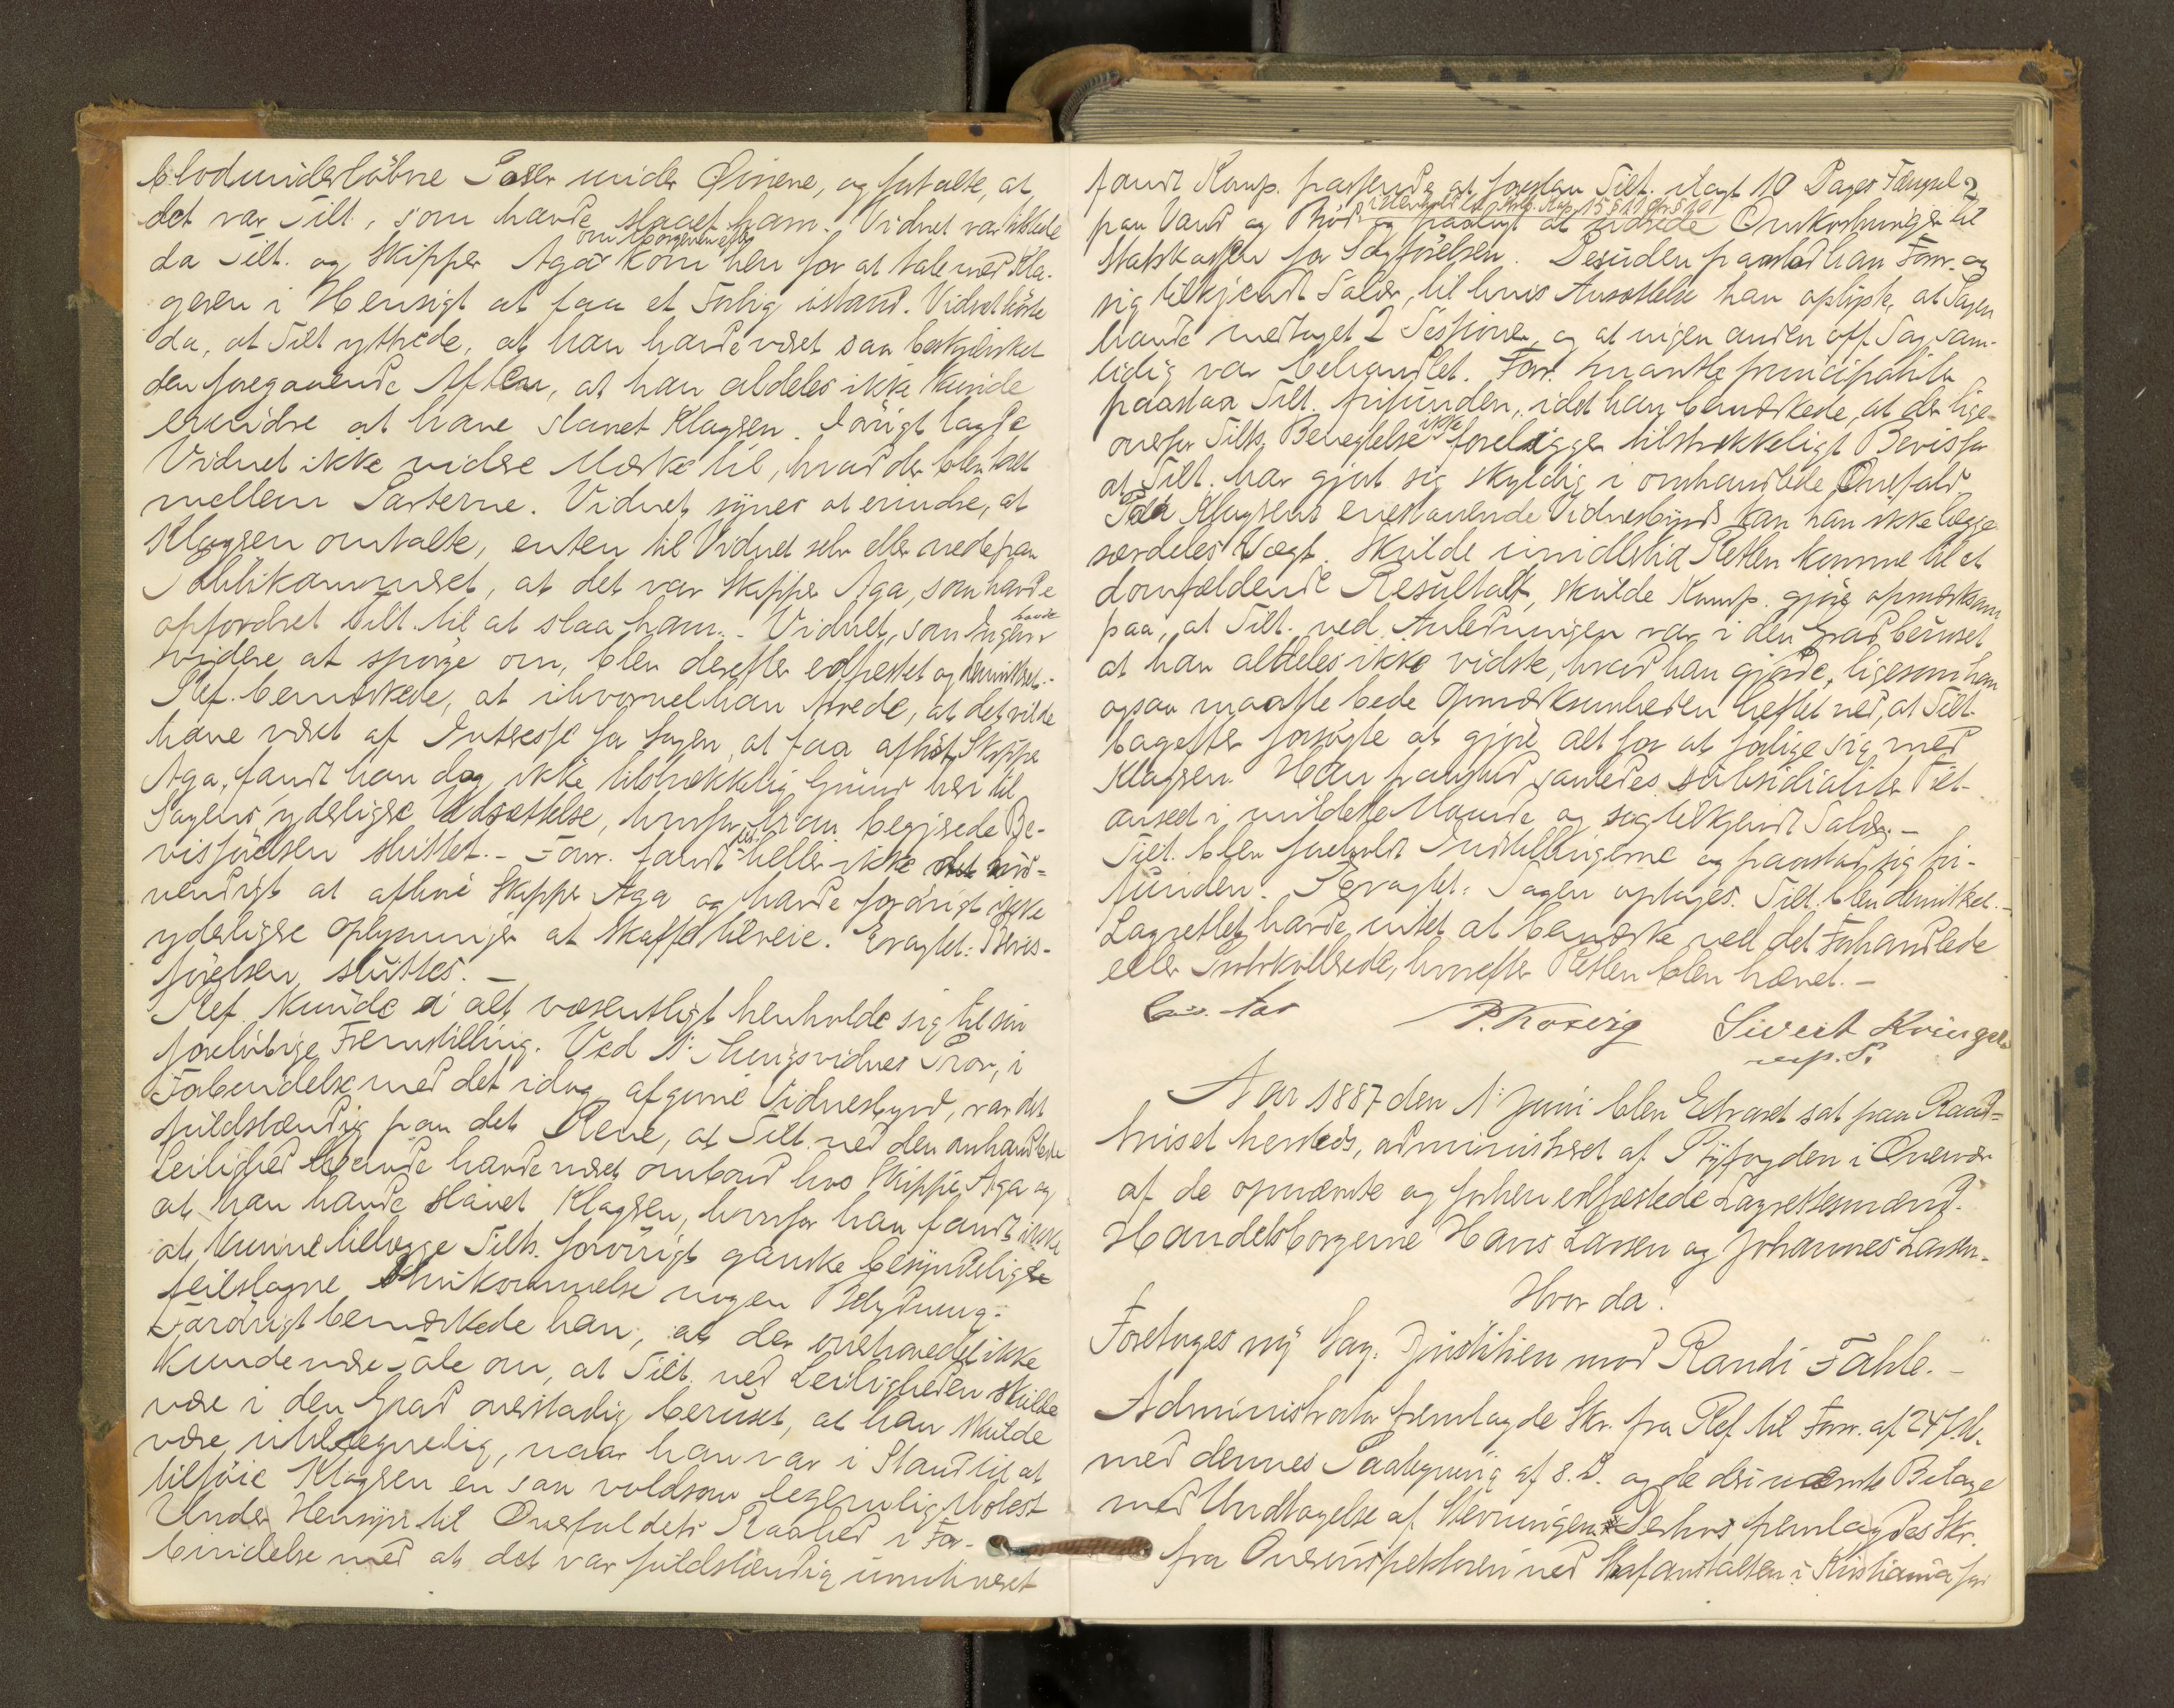 blodunderløbne Poser under Øinene, og fortalte, at
det var Tilt., som havde slaaet ham. Vidnet var tilstede
da Tilt. og Skipper Aga om Morgenen efter kom hen for at tale med Kla-
geren i Hensigt at faa et Forlig istand. Vidnet hørte
da, at Tilt yttrede, at han havde været saa beskjænket
den foregaaende Aften, at han aldeles ikke kunde
erindre at have slaaet Klageren. Iøvrigt lagde
Vidnet ikke videre Mærke til, hvad der blev talt
mellem Parterne. Vidnet synes at erindre, at
Klageren omtalte, enten til Vidnet selv eller nede paa
Politikammeret, at det var Skipper Aga, som havde
opfordret Tilt. til at slaa ham. - Vidnet, som Ingen havde
videre at spørge om, blev derefter edfæstet og demitteret. -
Ref. bemærkede, at ihvorvel han troede, at det vilde
have været af Interesse for Sagen at faa afhørt Skipper
Aga, fandt han dog ikke tilstrækkelig Grund heri til
Sagens yderligere Udsættelse, hvorfor han begjærede Be-
visførelsen sluttet. - Forsv. fandt det heller ikke nød-
vendigt at afhøre Skipper Aga og havde forøvrigt ikke
yderligere Oplysninger at skaffe tilveie. Eragtet: Bevis-
førelsen sluttes. -
Ref. kunde i alt væsentligt henholde sig til sin
foreløbige Fremstilling. Ved 1ste Thingsvidnes Prov, i
Forbindelse med det idag afgivne Vidnesbyrd, var det
fuldstændig paa det Rene, at Tilt. ved den omhandlede
Leilighed havde været ombord hos Skipper Aga og
at han havde slaaet Klageren, hvorfor han fandt ikke
at kunne tillægge Tilts. forøvrigt ganske besynderlige
feilslagne Hukommelse nogen Betydning.
Forøvrigt bemærkede han, at der overhovedet ikke
kunde være Tale om, at Tilt. ved Leiligheden skulde
være i den Grad overstadig beruset, at han skulde
være utilregnelig, naar han var i Stand til at
tilføie Klageren en saa voldsom legemlig Molest.
Under Hensyn til Overfaldets Raahed i For-
bindelse med at det var fuldstændig umotiveret
fandt Komp. passende at foreslaa Tilt. ilagt 10 Dages Fængsel
paa Vand og Brød og paalagt at udrede Omkostninger til
Statskassen for Sagførelsen. Desuden paastod han Forsv. og
sig tilkjendt Salær, til hvis Ansættelse han oplyste, at Sagen
havde medtaget 2 Sessioner, og at ingen anden off. Sag sam-
tidig var behandlet. Forsv. maatte principaliter
paastaa Tilt. frifunden, idet han bemærkede, at der lige-
overfor Tilts. Benegtelse ikke foreligger tilstrækkeligt Bevis for
at Tilt. har gjort sig skyldig i omhandlede Overfald.
Paa Klagerens enestaaende Vidnesbyrd kan han ikke lægge
særdeles Vægt. Skulde imidlertid Retten komme til et
domfældende Resultat, skulde Komp. gjøre opmærksom
paa, at Tilt. ved Anledningen var i den Grad beruset
at han aldeles ikke vidste, hvad han gjorde, ligesom han
ogsaa maatte bede Opmærksomheden heftet ved, at Tilt.
bagefter forsøgte at gjøre alt for at forlige sig med
Klageren. Han paastod saaledes subsidialiter Tilt.
anseet i mildeste Maade og sig tilkjendt Salær. -
Tilt. blev foreholdt Indstillingerne og paastod sig fri-
funden. Eragtet: Sagen optages. Tilt. blev demitteret. -
Lagrettet havde intet at bemærke ved det Forhandlede
eller Protokollerede, hvorefter Retten blev hævet. -
P. Kosvig Sivert Kvinge
m. p. P.
Aar 1887 den 1ste Juni blev Extraret sat paa Raad-
huset hersteds, administreret af Byfogden i Overvær
af de opnævnte og forhen edfæstede Lagrettesmænd:
Handelsborgerne Hans Larsen og Johannes Larsen.
Hvor da:
Foretages ny Sag: Justitien mod Randi Fahle. -
Administrator fremlagde Skr. fra Ref. til Forsv. af 24 f. M.
med dennes Paategning af s. D. og de deri nævnte Bilage
med Undtagelse af Stevningen. Derhos fremlagdes Skr.
fra Overinspektøren ved Strafanstalten i Kristiania for